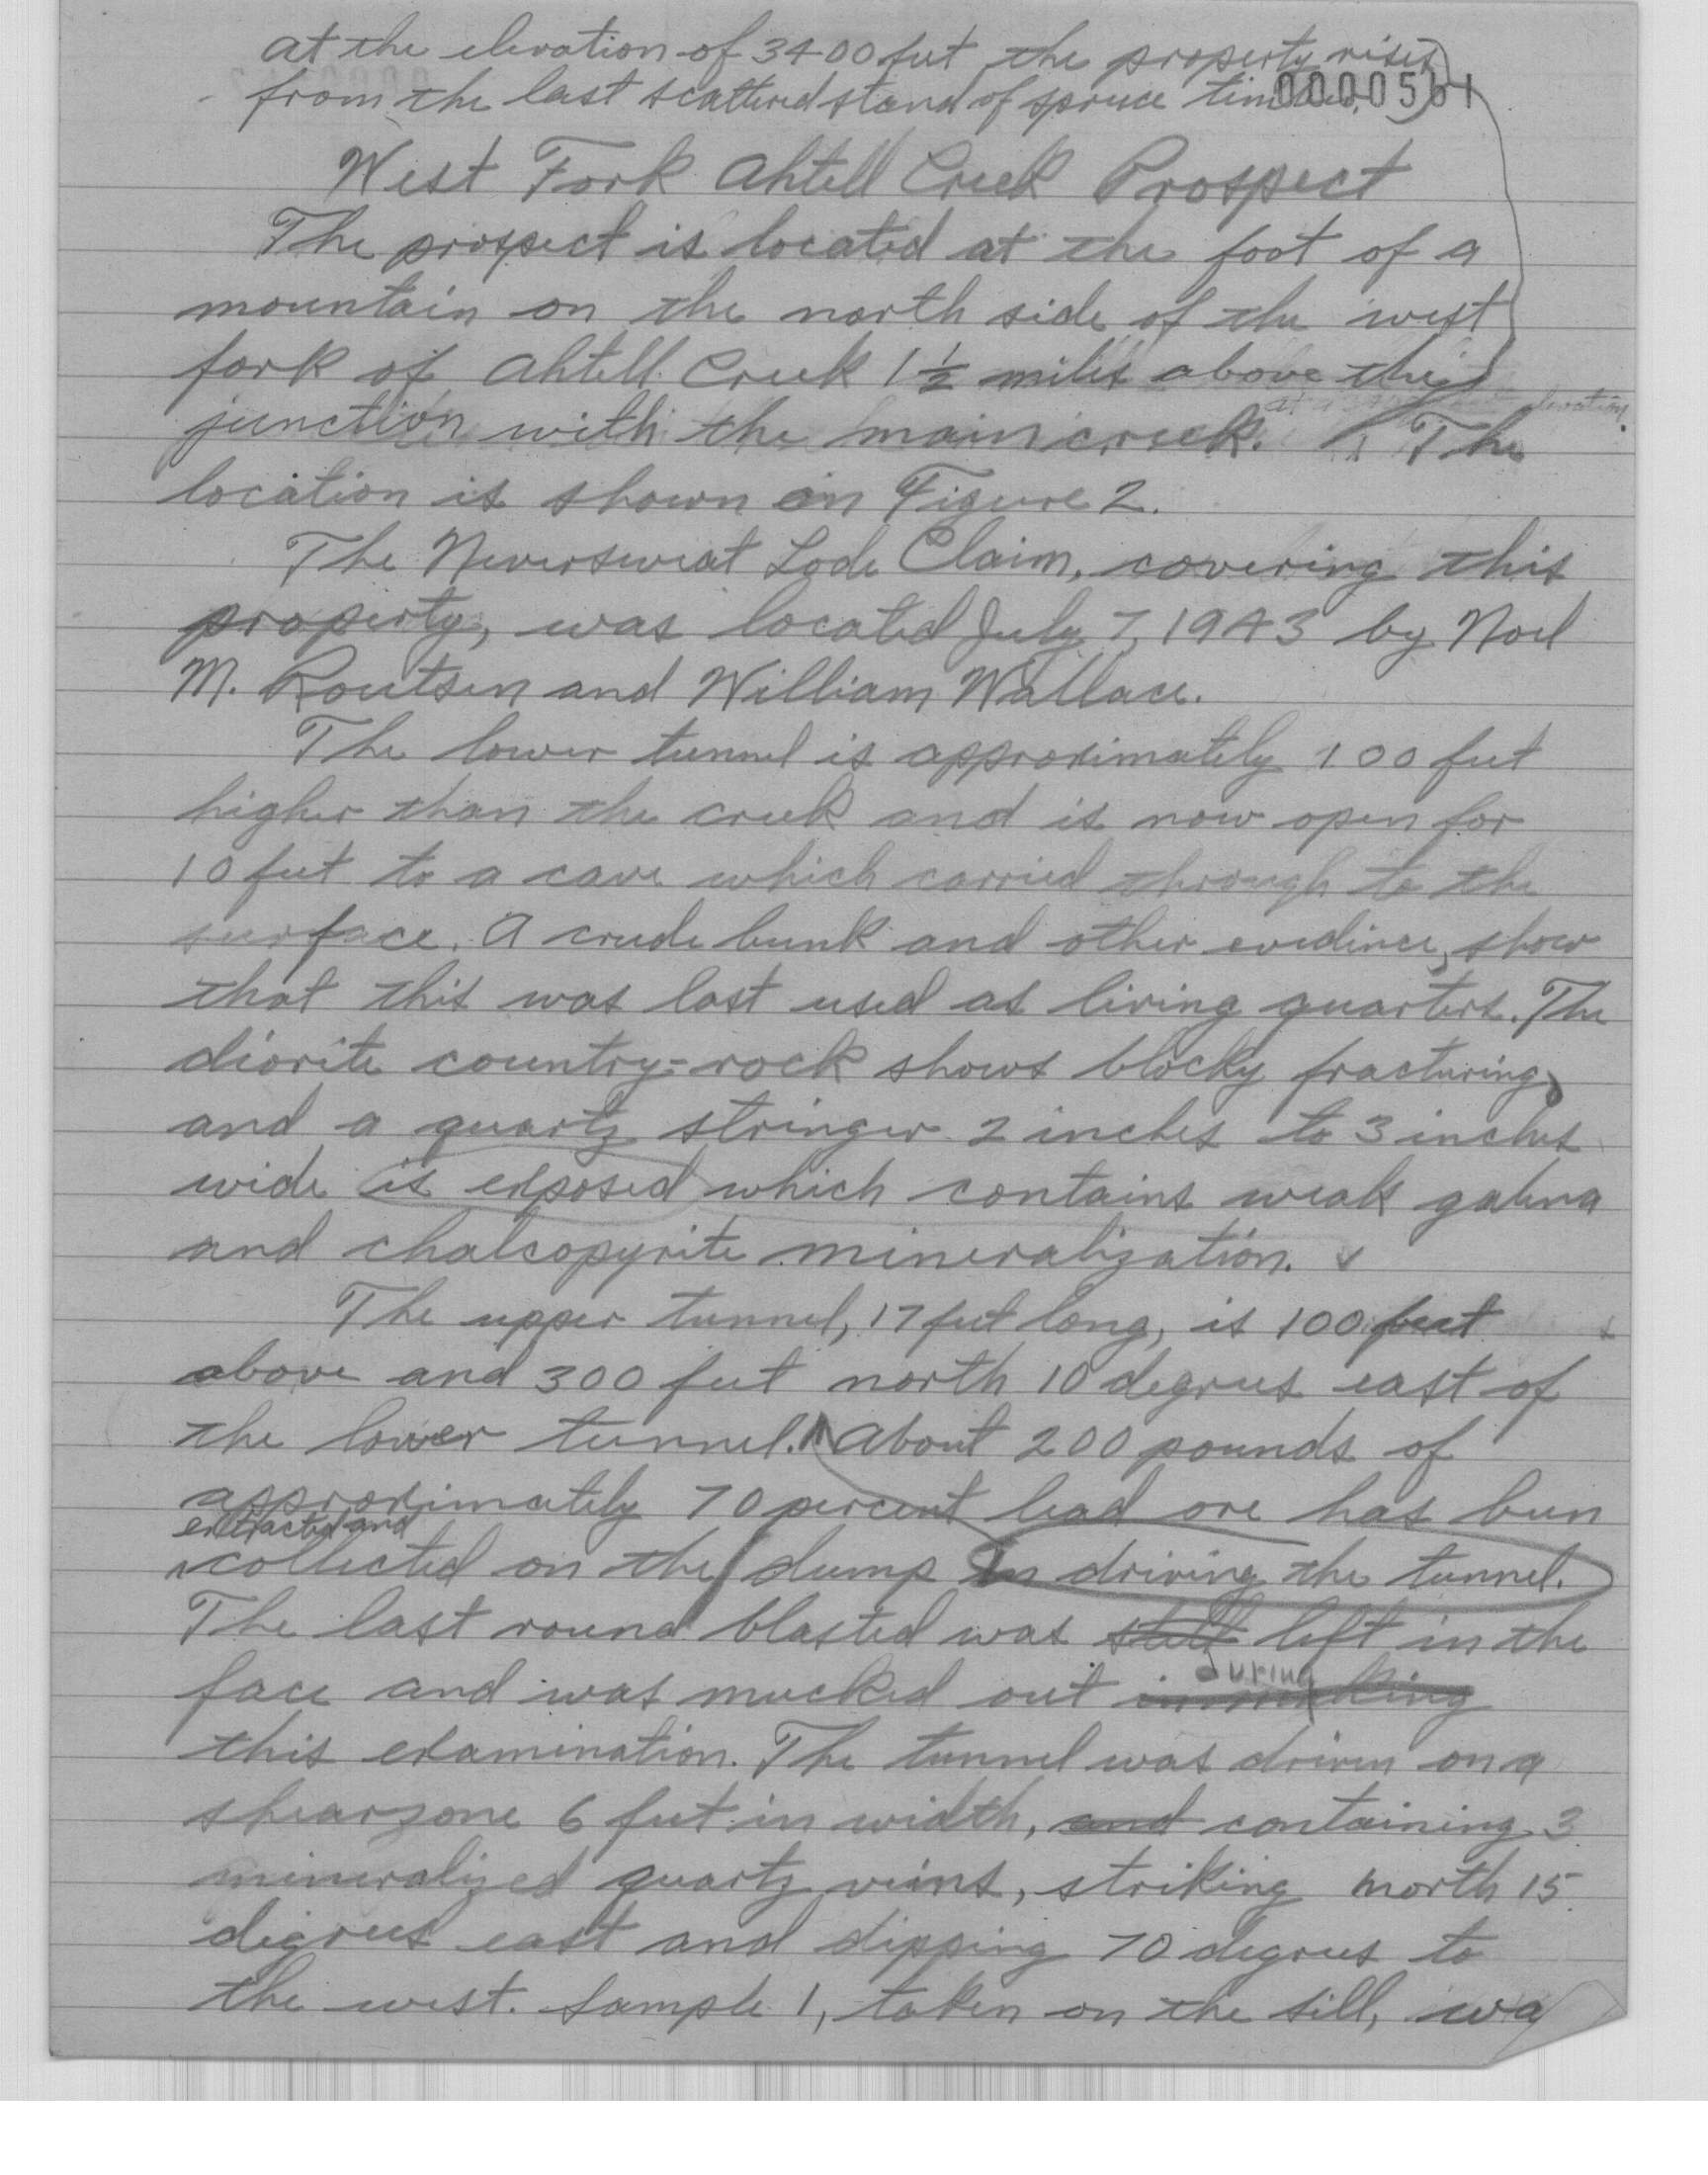 at the elevation of 3400 feet the property rises
0000561
from the last scattered stand of spruce timber.
West Fork Ahtell Creek Prospect
The prospect is located at the foot of a
mountain on the north side of the west
fork of Ahtell Creek 1 1/2 miles above the
elevation.
junction with the main creek. The
location is shown on Figure 2.
The Neversweat Lode Claim, covering this
property, was located July 7, 1943 by Noel
M. Routsen and William Wallace.
The lower tunnel is approximately 100 feet
higher than the creek and is now open for
10 feet to a cave which carried through to the
surface. A crude bunk and other evidence, show
that this was last used as living quarters. The
diorite country-rock shows blocky fracturing,
and a quartz stringer 2 inches to 3 inches
wide is exposed which contains weak galena
and chalcopyrite mineralization.
The upper tunnel, 17 feet long, is 100 feet
above and 300 feet north 10 degrees east of
the lower tunnel. About 200 pounds of
approximately 70 percent lead ore has been
extracted and
collected on the dump in driving the tunnel.
The last round blasted was still left in the
during
face and was mucked out in making
this examination. The tunnel was driven on a
shearzone 6 feet in width, and containing 3
mineralized quartz veins, striking north 15
degrees east and dipping 70 degrees to
the west. Sample 1, taken on the sill, wa